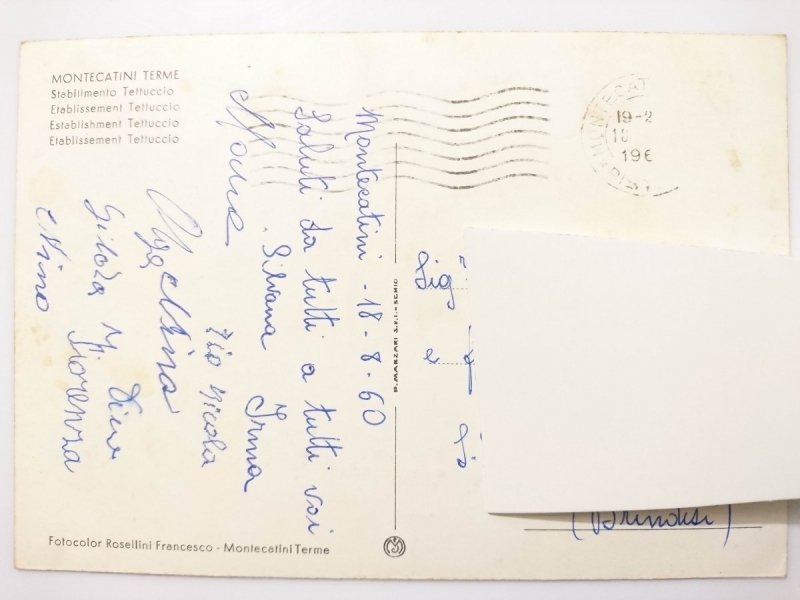 MONTECATINI TERME
Stabilimento Tettuccio
Etablissement Tettuccio
Establishment Tettuccio
Etablissement Tettuccio
Montecatini - 18-8-60
Saluti da tutti a tutti voi
Silvana Irma
Zio Nicola
Dino
Fiorenza
Nino
P. MARZARI S.R.L. - SCHIO
19-2
18
196
Sig
(Brindisi)
Fotocolor Rosellini Francesco - Montecatini Terme